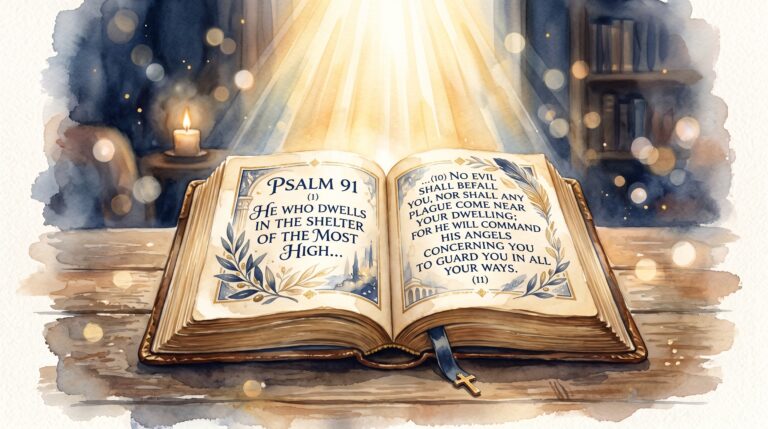 PSALM 91
(1)
HE WHO DWELLS
IN THE SHELTER
OF THE MOST
HIGH...
...(10) NO EVIL
SHALL BEFALL
YOU, NOR SHALL ANY
PLAGUE COME NEAR
YOUR DWELLING:
FOR HE WILL COMMAND
HIS ANGELS
CONCERNING YOU
TO GUARD YOU IN ALL
YOUR WAYS.
(11)